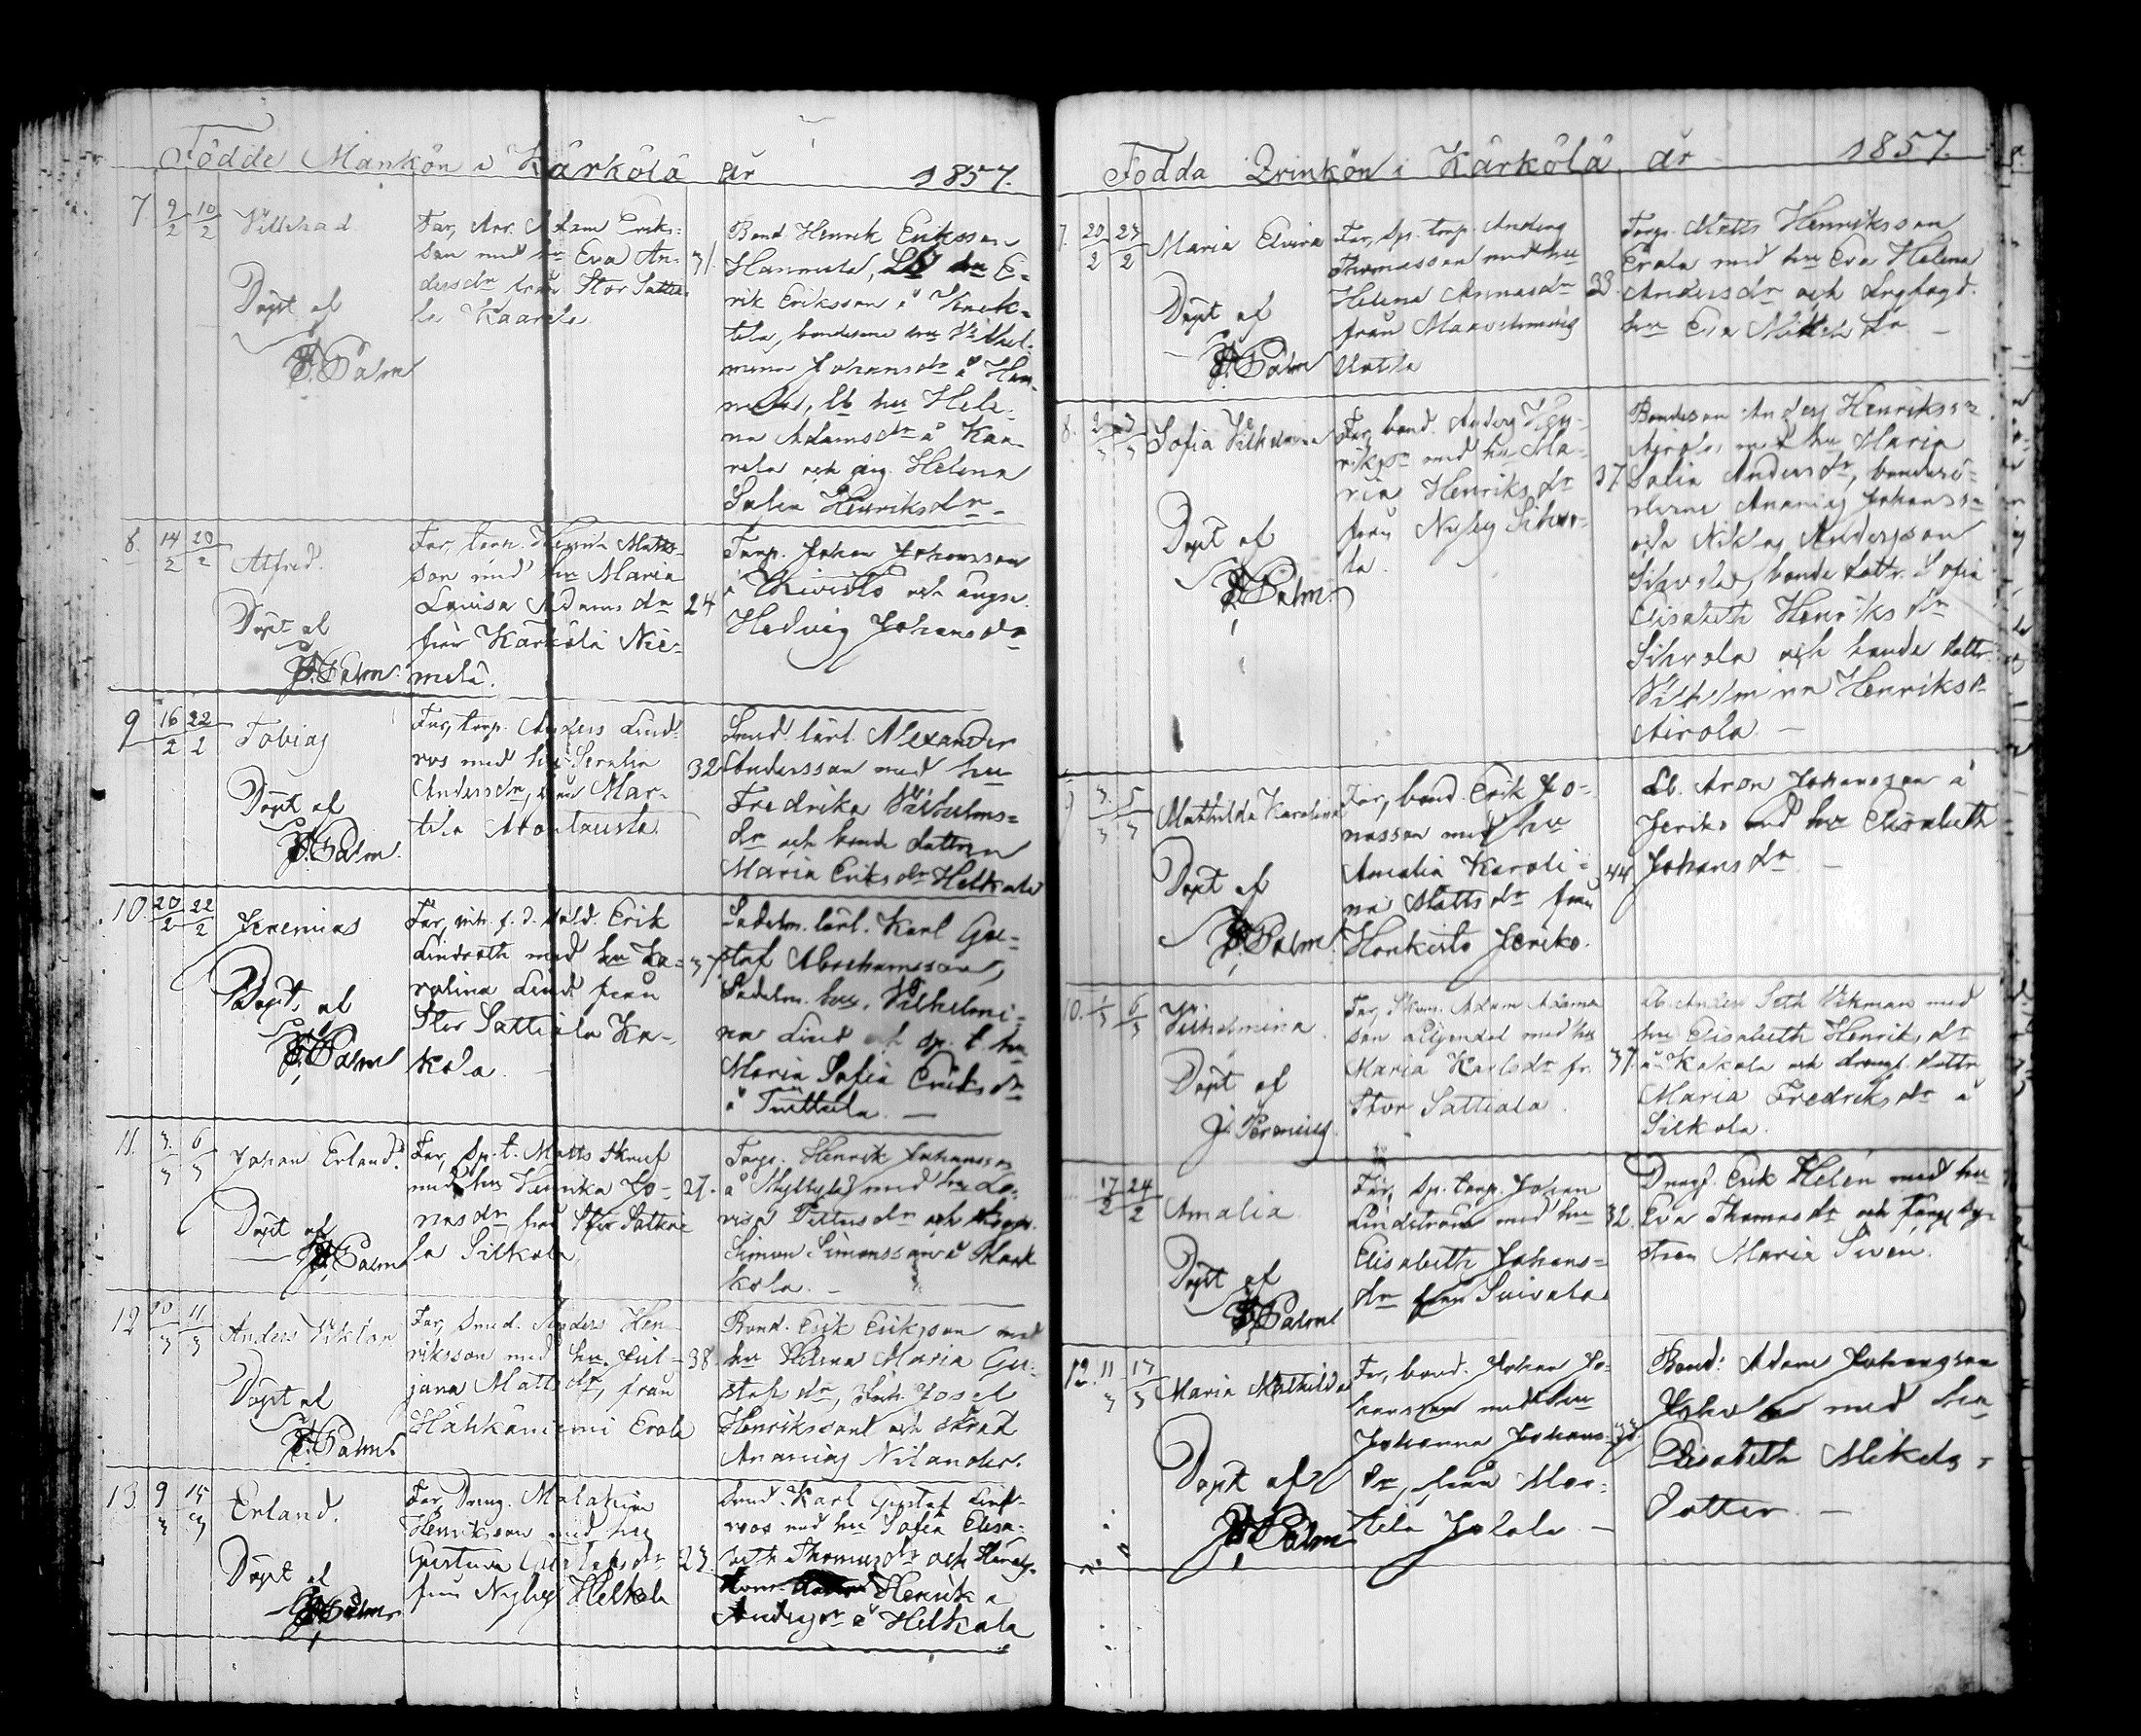 Födde Mankön i Kärkölä år 1857.
7. 9/2 10/2 Villehad
Dopt af
Palm
Far, Arr. Adam Eriks-
son med hu Eva An-
dersdr från Stor Sattia-
la Kaarela
31.
Bond Henrik Eriksson
Hannula, hu E-
rik Eriksson å
tila, bondesonen hu Vilhel-
mina Johansdr å Han-
nula, Lb hu Hele-
na Adamsdr å Kaa-
rela och pig. Helena
Sofia Henriksdr
8. 14/2 20/2 Alfred.
Dopt af
Palm.
Far, torp. Henrik Matts-
son med hu Maria
Lovisa Adamsdr
från Kärkölä Nie-
melä.
24
Torp. Johan Johansson
å Kivistö och
Hedvig Johansdr
9 16/2 22/2 Tobias
Dopt af
Palm.
Far, torp. Anders Lind-
ros med hu Serafia
Andersdr, från Mar-
tila
32
Smed. lärl. Alexander
Andersson med hu
Fredrika Vilhelms-
dr och bonde dottren
Maria Eriksdr Helkala
10. 20/2 22/2 Jeremias
Dopt af
Palm
Far, inh. f. d. sold. Erik
Lindroth med hu Ka-
rolina Lind från
Stor Sattiala Ka-
kola.
37
Sadelm. lärl. Karl Gu-
staf Abrahamsson,
Sadelm. hu. Vilhelmi-
na Lind och sp. t. hu
Maria Sofia Eriksdr
å Tuittula.
11. 3/3 6/3 Johan Erland.
Dopt af
Palm
Far, Sp. t. Matts Skruf
med hu Henrika Jo-
nasdr, från Stor Sattia-
la Silkola,
27.
Torp. Henrik Johansson
å Myllylä med hu Lo-
visa Pettersdr och
Simon Simonsson å
kola.
12 10/3 11/3 Anders Viktor
Dopt af
Palm.
Far, Smed. Anders Hen-
riksson med hu. Jul-
jana Mattsdr, från
Hähkäniemi Erola
38.
Bond. Erik Eriksson med
hu Helena Maria Gu-
stafsdr, Josef
Henriksson och skräd
Ananias Nilander.
13. 9/3 15/3 Erland.
Dopt af
Palm
Far, Dreng. Malakias
Henriksson med hu
Gustava Gustafsdr
från Nyby Helkala
23.
Smed. Karl Gustaf Lind-
roos med hu Sofia Elisa-
beth Thomasdr och
Henrik
Andersson å Helkala
Födda Qvinkön i Kärkölä år 1857.
7. 20/2 23/2 Maria Elvira
Dopt af
Palm
Far, Sp. torp. Anders
Thomasson med hu
Helena Annasdr
från Maavehmais
Uotila
33
Torp. Matts Henriksson
Erola med hu Eva Helena
Andersdr och
hu Eva
8. 2/3 3/3 Sofia Vilhelmina
Dopt af
Palm.
Far, bond. Anders Hen-
riksson med hu Ma-
ria Henriksdr
från Nyby Sihvo-
la.
37
Bondeson Anders Henriksson
Airola, med hu Maria
Sofia Andersdr, bondesö-
nerne Ananias Johansson
och Niklas Andersson
Sihvola, bonde dottr. Sofia
Elisabeth Henriksdr
Sihvola och bonde dottr
Vilhelmina Henriksdr
Airola.
9 3/3 5/3 Mathilda Karolina
Dopt af
Palm.
Far, bond. Erik Jo-
nasson med hu
Amalia Karoli-
na Mattsdr från
Honkisto Jeriko.
44
Lb. Aron Johansson å
Jeriko med hu Elisabeth
Johansdr
10. 1/3 6/3 Vilhelmina
Dopt af
J. Perenius.
Far, Skom. Adam Adams-
son Liljendal med hu
Maria Karlsdr fr.
Stor Sattiala
37.
Lb. Anders Seth Vikman med
hu Elisabeth Henriksdr
å Kakola och drengs. dottr
Maria Fredriksdr å
Silkola.
17/2 24/2 Amalia
Dopt af
Palm
Far, Sp. torp. Johan
Lindström med hu
Elisabeth Johans-
dr från Suivala
32.
Drengs. Erik Helén med hu
Eva Thomasdr och
Maria Sivén.
12. 11/3 13/3 Maria Mathilda
Dopt af
Palm
Far, bond. Johan Jo-
hansson med hu
Johanna Johans-
dr, från Mar-
tila Jolala
38.
Bond. Adam Johansson
med hu
Elisabeth Mikels-
dotter.